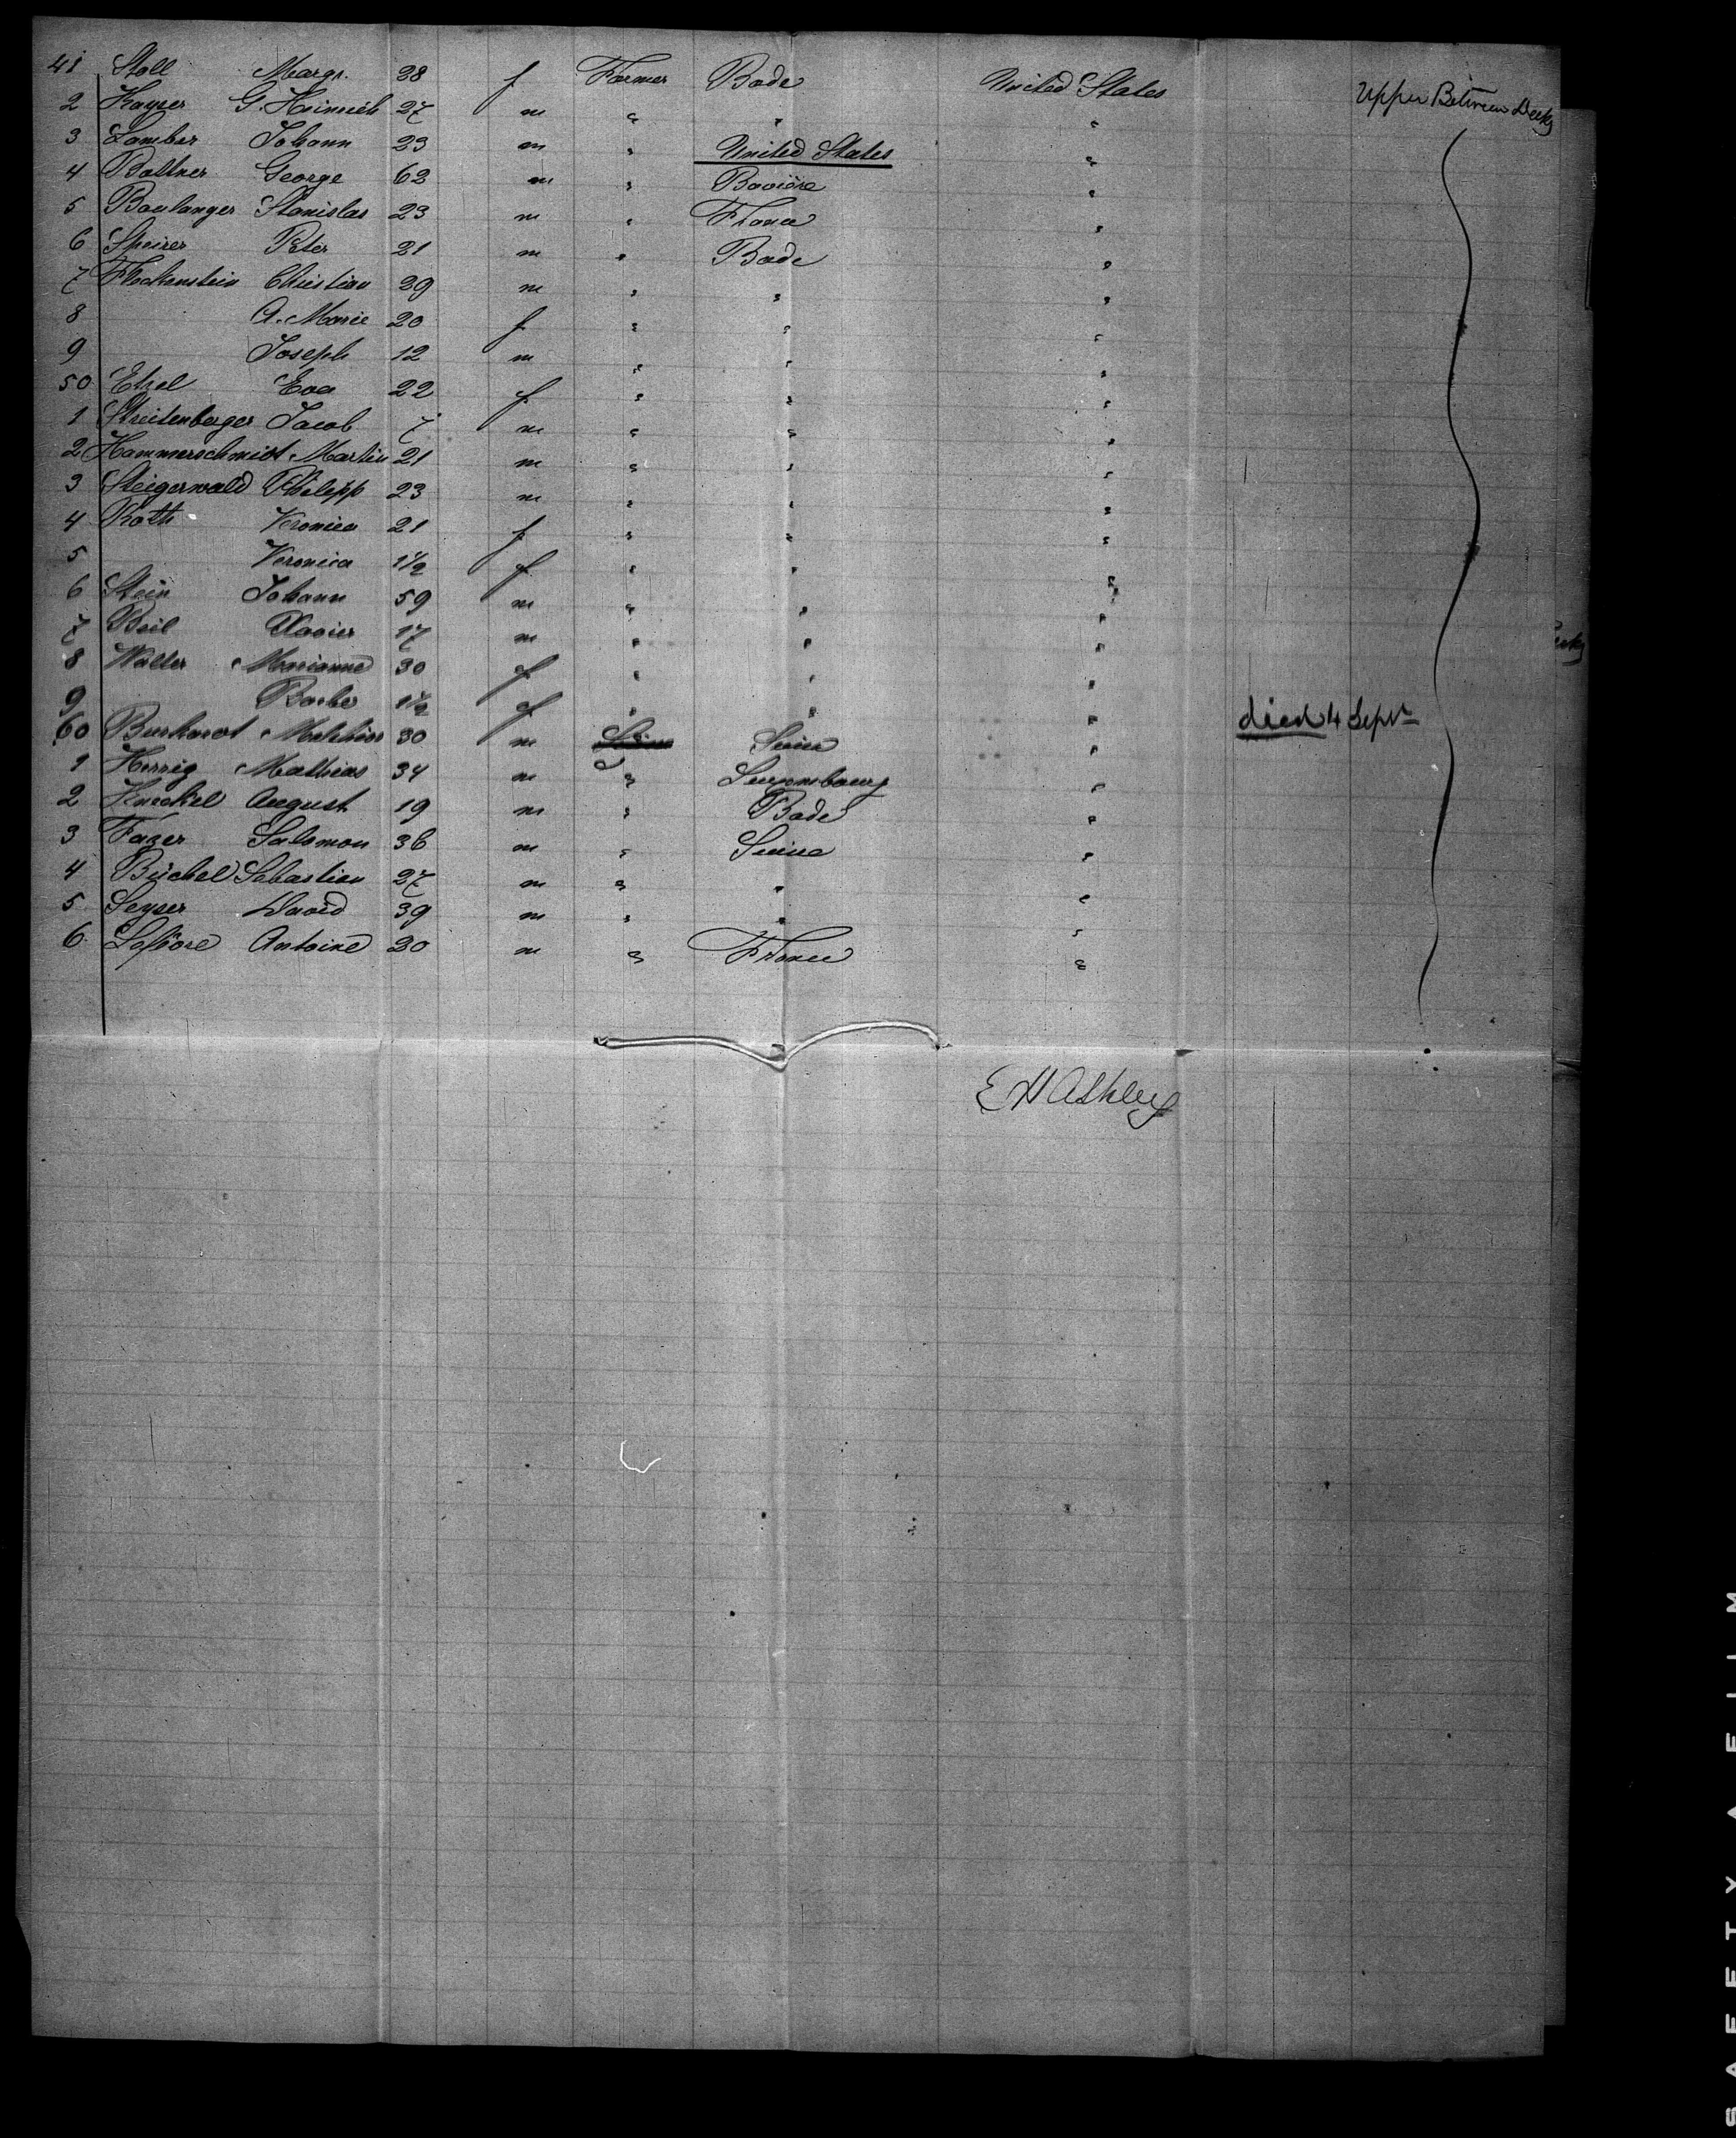 41 Stoll Margr. 28 f Farmer Bade United States Upper Between Decks
2 Kayser G. Heinrich 27 m " " "
3 Lamber Johann 23 m " United States "
4 Baltner George 62 m " Bavière "
5 Boulanger Stanislas 23 m " France "
6 Speirer Peter 21 m " Bade "
7 Fleckenstein Christian 39 m " " "
8 A. Marie 20 f " " "
9 Joseph 12 m " " "
50 Etzel Eva 22 f " " "
1 Streitenberger Jacob 7 m " " "
2 Hammerschmidt Martin 21 m " " "
3 Steigerwald Philipp 23 m " " "
4 Roth Veronica 21 f " " "
5 Veronica 1½ f " " "
6 Stein Johann 59 m " " "
7 Beil Xavier 17 m " " "
8 Walter Marianne 30 f " " "
9 Barbe 1½ f " " " died 4 Sept
60 Burkardt Melchior 30 m Suisse "
1 Herrig Mathias 34 m " Luxembourg "
2 Kneckel August 19 m " Bade "
3 Fazer Salomon 36 m " Suisse "
4 Büchel Sebastian 27 m " " "
5 Seyser David 39 m " " "
6 Antoine 30 m " France "
E H Ashley
SAFETY FILM